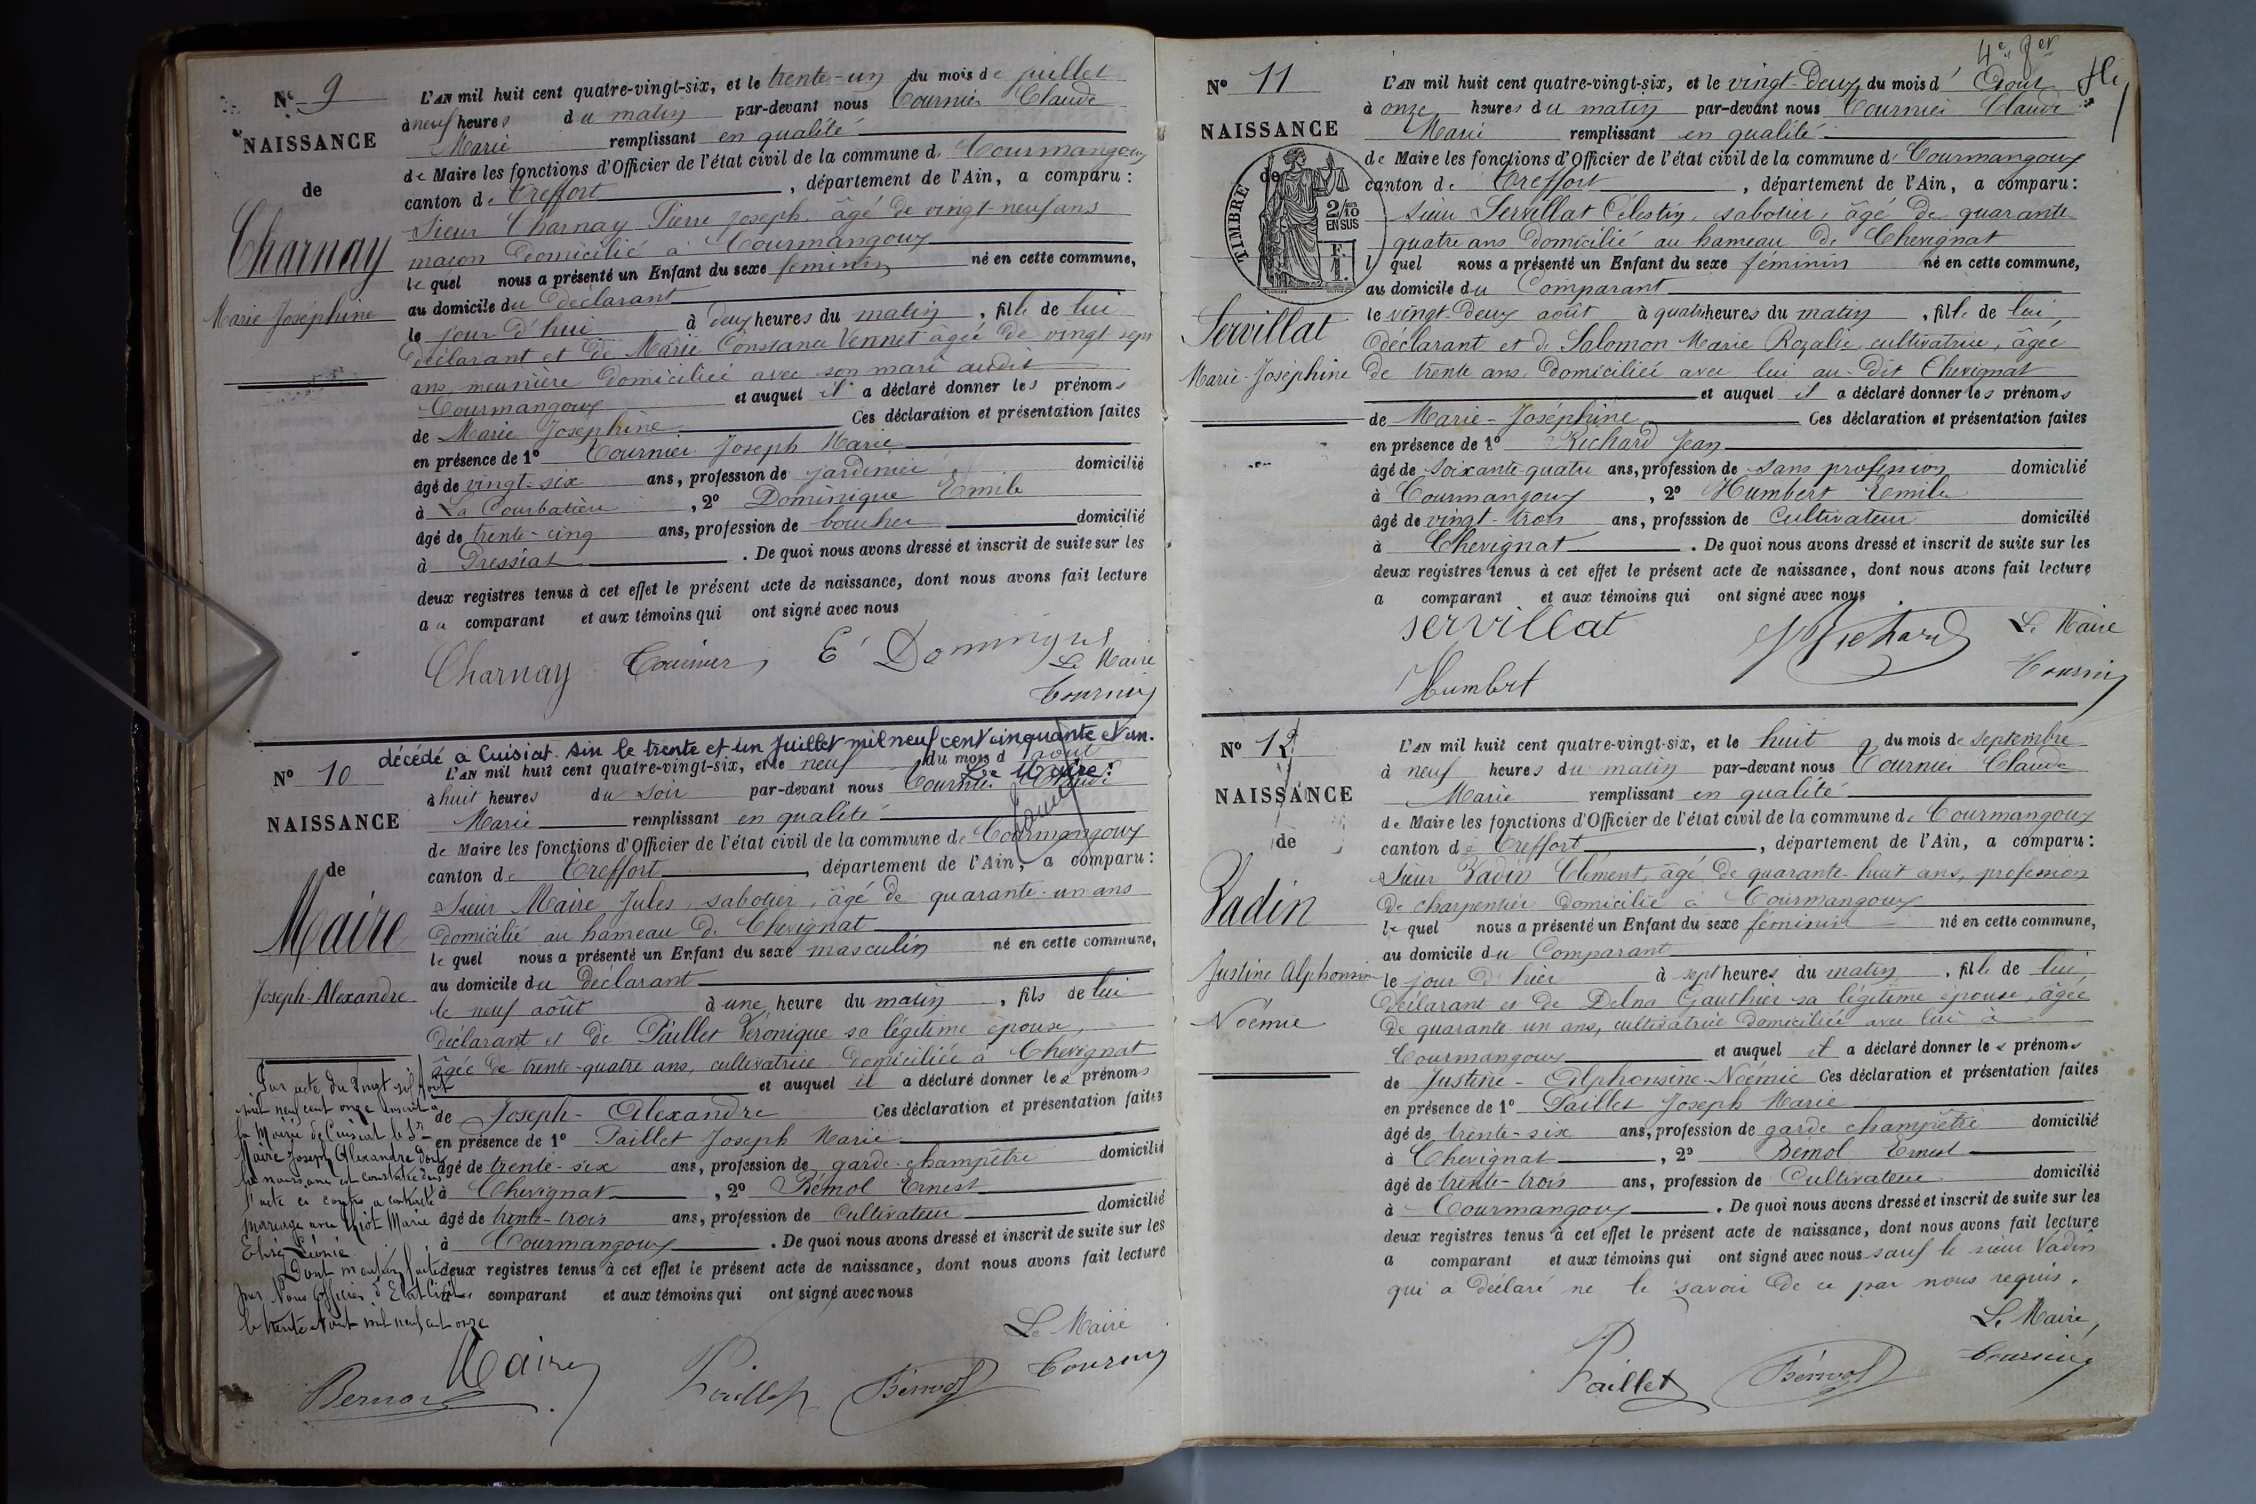 N° 9
NAISSANCE
de
Charnay
Marie Joséphine
L'AN mil huit cent quatre-vingt-six, et le trente-un du mois de juillet
à neuf heures du matin par-devant nous Tournier Claude
Marie remplissant en qualité
de Maire les fonctions d'Officier de l'état civil de la commune de Courmangoux
canton de Treffort, département de l'Ain, a comparu:
Sieur Charnay Pierre Joseph, âgé de vingt-neuf ans
macon domicilié à Courmangoux
lequel nous a présenté un Enfant du sexe féminin né en cette commune,
au domicile du déclarant
le jour d'hui à deux heures du matin, fille de lui
déclarant et de Marie Constance Vennet âgée de vingt sept
ans, meunière domiciliée avec son mari audit
Courmangoux et auquel il a déclaré donner les prénoms
de Marie Joséphine Ces déclaration et présentation faites
en présence de 1° Tournier Joseph Marie
âgé de vingt-six ans, profession de jardinier domicilié
à La Courbatière, 2° Dominique Emile
âgé de trente-cinq ans, profession de boucher domicilié
à Pressiat. De quoi nous avons dressé et inscrit de suite sur les
deux registres tenus à cet effet le présent acte de naissance, dont nous avons fait lecture
au comparant et aux témoins qui ont signé avec nous
Charnay Tournier E Dominique
Le Maire
Tournier
décédé à Cuisiat. Ain le trente et un Juillet mil neuf cent cinquante et un.
Le Maire:
N° 10
NAISSANCE
de
Maire
Joseph-Alexandre
L'AN mil huit cent quatre-vingt-six, et le neuf du mois d'août
à huit heures du soir par-devant nous Tournier Claude
Marie remplissant en qualité
de Maire les fonctions d'Officier de l'état civil de la commune de Courmangoux
canton de Treffort, département de l'Ain, a comparu:
Sieur Maire Jules, sabotier, âgé de quarante-un ans
domicilié au hameau de Chevignat
lequel nous a présenté un Enfant du sexe masculin né en cette commune,
au domicile du déclarant
le neuf août à une heure du matin, fils de lui
déclarant et de Paillet Véronique sa légitime épouse,
âgée de trente-quatre ans, cultivatrice domiciliée à Chevignat
et auquel il a déclaré donner les prénoms
de Joseph-Alexandre Ces déclaration et présentation faites
en présence de 1° Paillet Joseph Marie
âgé de trente-six ans, profession de garde-champêtre domicilié
à Chevignat, 2° Bémol Ernest
âgé de trente-trois ans, profession de Cultivateur domicilié
à Courmangoux. De quoi nous avons dressé et inscrit de suite sur les
deux registres tenus à cet effet le présent acte de naissance, dont nous avons fait lecture
comparant et aux témoins qui ont signé avec nous
Par acte du vingt six Août
mil neuf cent onze inscrit à
la Mairie de Cuisiat le Sr
Maire Joseph Alexandre dont
la naissance est constatée dans
l'acte ci contre a contracté
mariage avec Marie
Léonie
Dont mention faite
par Nous Officier d'Etat Civil
le trente Aout mil neuf cent onze
Maire
Paillet Bémol
Le Maire
Tournier
4e
N° 11
NAISSANCE
de
TIMBRE
2/10
EN SUS
Servillat
Marie-Joséphine
L'AN mil huit cent quatre-vingt-six, et le vingt-deux du mois d'Août
à onze heures du matin par-devant nous Tournier Claude
Marie remplissant en qualité
de Maire les fonctions d'Officier de l'état civil de la commune de Courmangoux
canton de Treffort, département de l'Ain, a comparu:
Sieur Servillat Célestin, sabotier, âgé de quarante
quatre ans domicilié au hameau de Chevignat
lequel nous a présenté un Enfant du sexe féminin né en cette commune,
au domicile du Comparant
le vingt-deux août à quatre heures du matin, fille de lui
déclarant et de Salomon Marie Rozalie, cultivatrice, âgée
de trente ans, domiciliée avec lui au-dit Chevignat
et auquel il a déclaré donner les prénoms
de Marie-Joséphine Ces déclaration et présentation faites
en présence de 1° Richard Jean
âgé de soixante-quatre ans, profession de sans profession domicilié
à Courmangoux, 2° Humbert Emile
âgé de vingt-trois ans, profession de Cultivateur domicilié
à Chevignat. De quoi nous avons dressé et inscrit de suite sur les
deux registres tenus à cet effet le présent acte de naissance, dont nous avons fait lecture
a comparant et aux témoins qui ont signé avec nous
servillat Richard Le Maire
Humbert Tournier
N° 12
NAISSANCE
de
Vadin
Justine Alphonsine
Noémie
L'AN mil huit cent quatre-vingt-six, et le huit du mois de septembre
à neuf heures du matin par-devant nous Tournier Claude
Marie remplissant en qualité
de Maire les fonctions d'Officier de l'état civil de la commune de Courmangoux
canton de Treffort, département de l'Ain, a comparu:
Sieur Vadin Clément, âgé de quarante-huit ans, profession
de charpentier domicilié à Courmangoux
lequel nous a présenté un Enfant du sexe féminin né en cette commune,
au domicile du Comparant
le jour d'hier à sept heures du matin, fille de lui,
déclarant et de Delna Gauthier sa légitime épouse, âgée
de quarante un ans, cultivatrice domiciliée avec lui à
Courmangoux et auquel il a déclaré donner les prénoms
de Justine-Alphonsine-Noémie Ces déclaration et présentation faites
en présence de 1° Paillet Joseph Marie
âgé de trente-six ans, profession de garde champêtre domicilié
à Chevignat, 2° Bémol Ernest
âgé de trente-trois ans, profession de Cultivateur domicilié
à Courmangoux. De quoi nous avons dressé et inscrit de suite sur les
deux registres tenus à cet effet le présent acte de naissance, dont nous avons fait lecture
a comparant et aux témoins qui ont signé avec nous sauf le sieur Vadin
qui a déclaré ne le savoir de ce par nous requis.
Le Maire,
Paillet Bémol Tournier